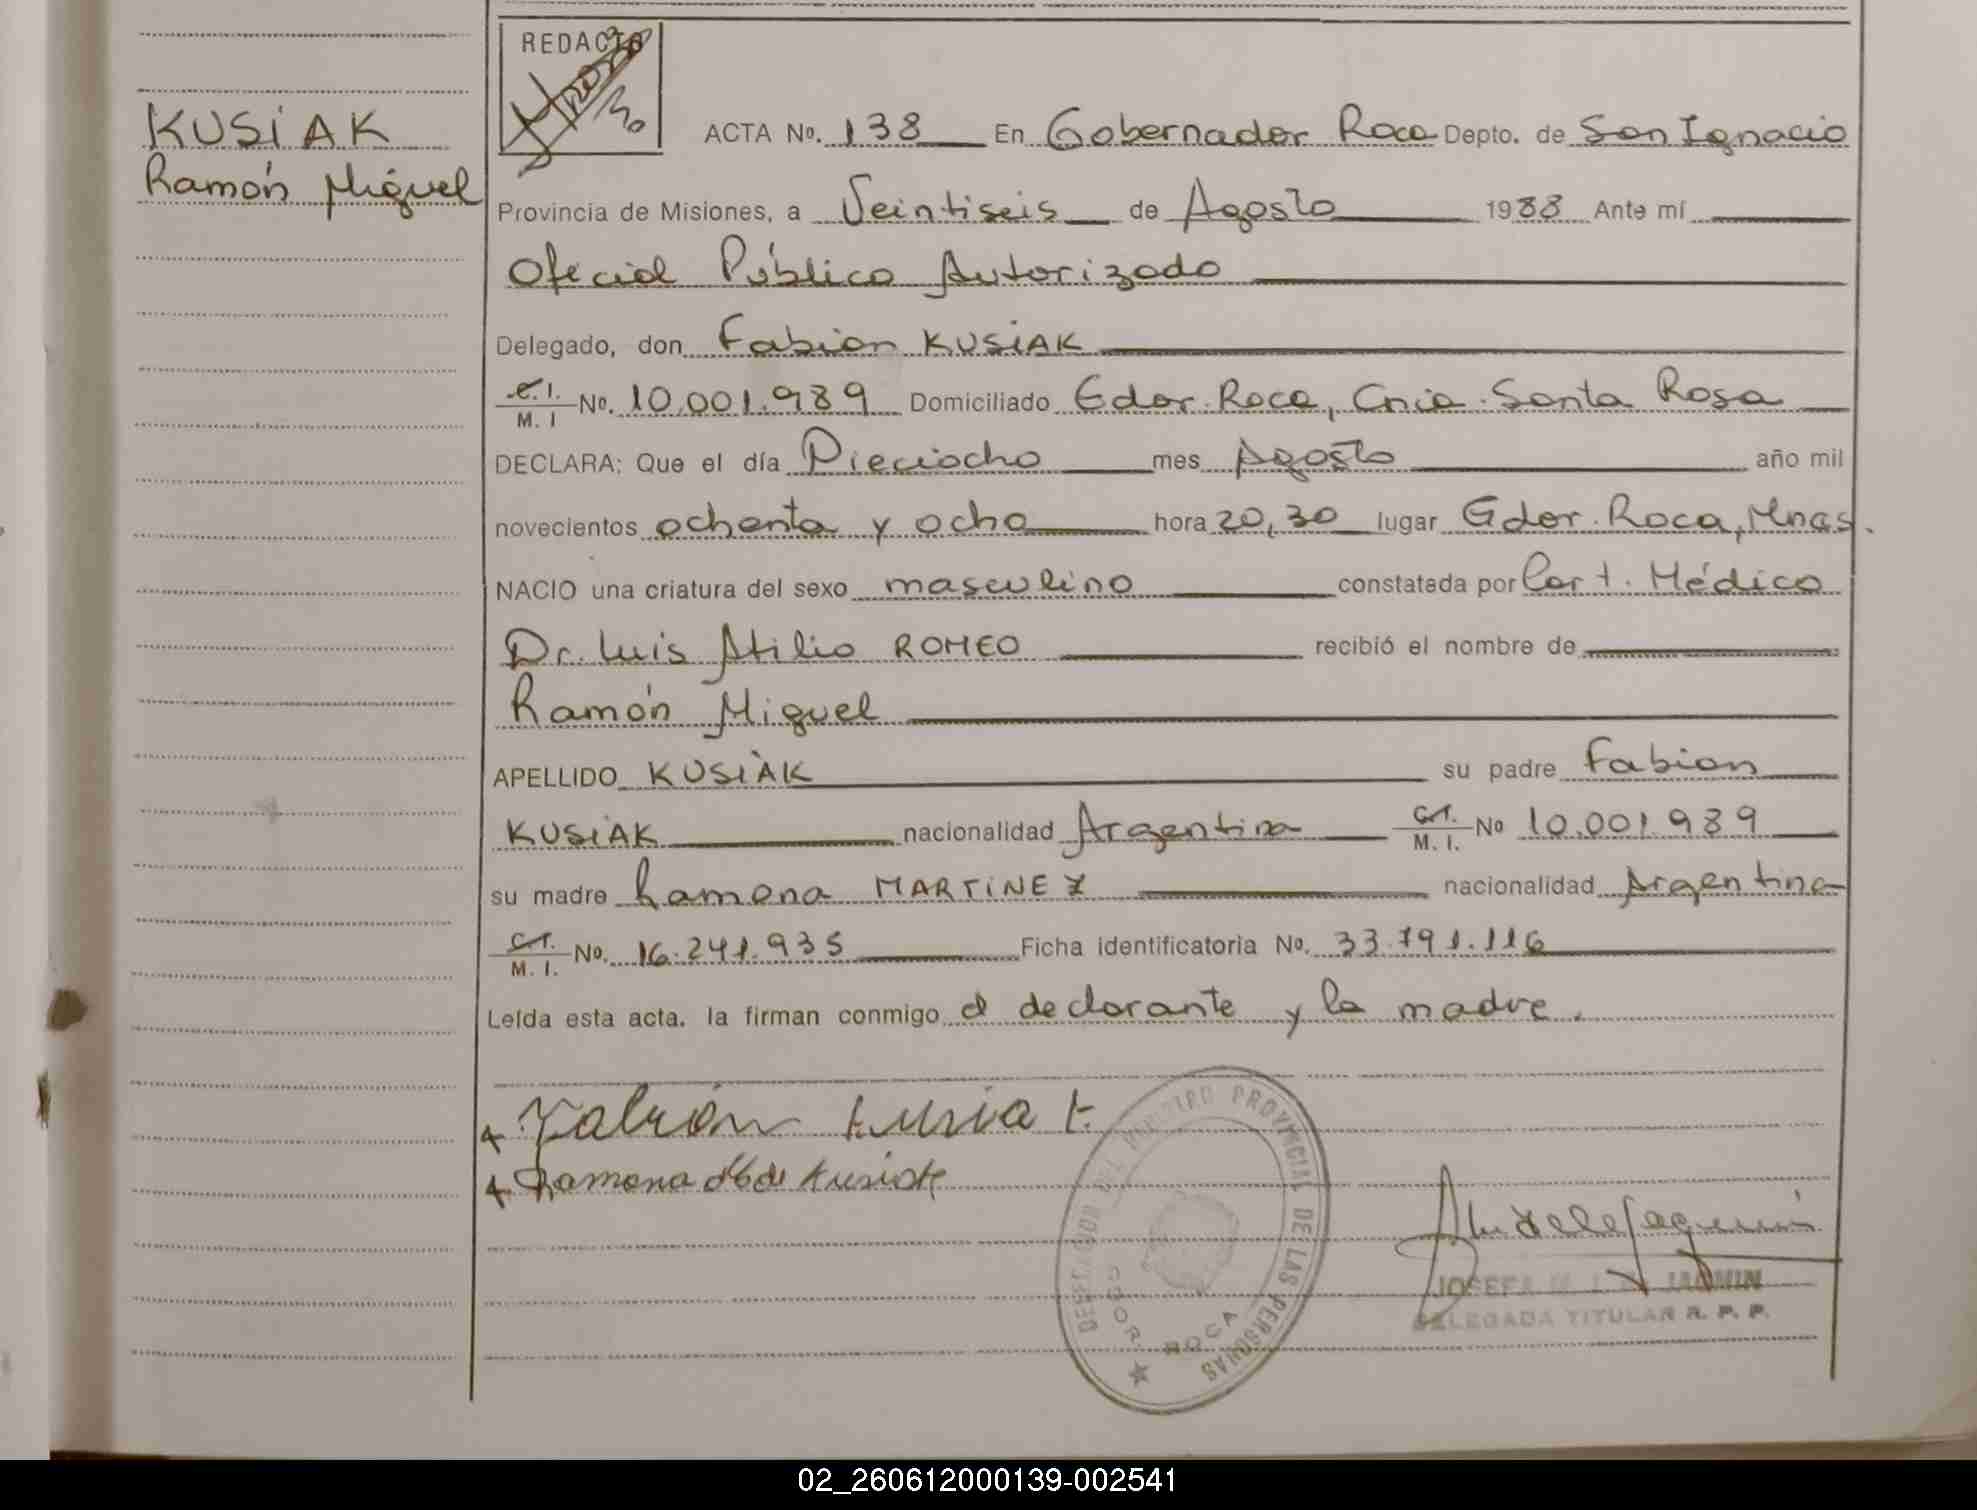 KUSiAK
Ramón Miguel
REDACTO
ACTA No. 138 En Gobernador Roca Depto. de San Ignacio
Provincia de Misiones, a Veintiseis de Agosto 1988 Ante mí
Oficial Público Autorizado
Delegado, don Fabian KUSiAK
C.I. M. I No. 10.001.989 Domiciliado Gdor. Roca, Cnia. Santa Rosa
DECLARA: Que el día Dieciocho mes Agosto año mil
novecientos ochenta y ocho hora 20,30 lugar Gdor. Roca, Mnes.
NACIO una criatura del sexo masculino constatada por Cert. Médico
Dr. Luis Atilio ROMEO recibió el nombre de
Ramón Miguel
APELLIDO KUSIAK su padre Fabian
KUSiAK nacionalidad Argentina C.I. M. I. No 10.001.989
su madre Ramona MARTINEZ nacionalidad Argentina
C.I. M. I. No. 16.241.935 Ficha identificatoria No. 33.791.116
Leída esta acta. la firman conmigo el declarante y la madre.
Fabián Kusiak
Ramona M de Kusiak
DELEGACION DEL REGISTRO PROVINCIAL DE LAS PERSONAS
GDOR. ROCA
JOSEFA
DELEGADA TITULAR R. P. P.
02_260612000139-002541